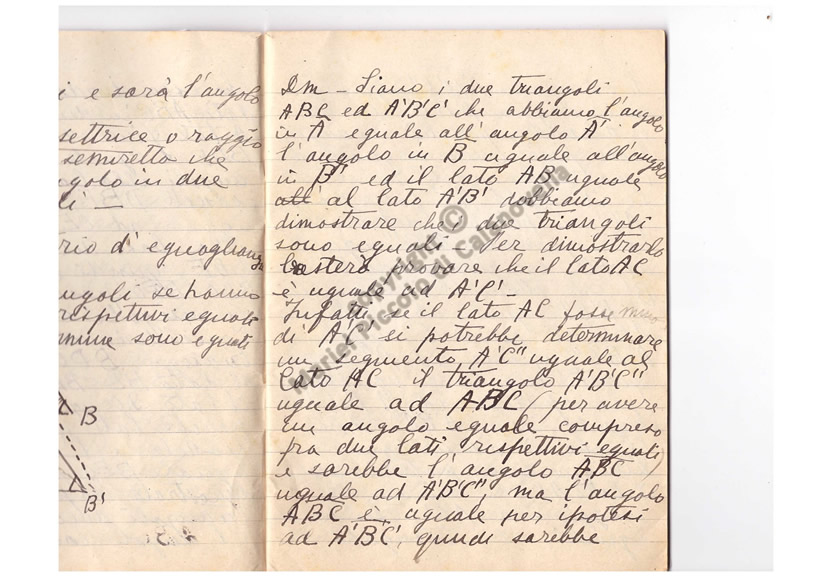 i e sarà l'angolo
settrice o raggio
semiretta che
ngolo in due
li —
rio d'eguaglianza
ngoli se hanno
rispettivi eguali
mine sono eguali
B
B'
Dm - Siano i due triangoli
ABC ed A'B'C' che abbiamo l'angolo
in A eguale all'angolo A'
l'angolo in B uguale all'angolo
in B' ed il lato AB uguale
all' al lato A'B' dobbiamo
dimostrare che i due triangoli
sono eguali - Per dimostrarlo
basterà provare che il lato AC
è uguale ad A'C' -
Infatti se il lato AC fosse mino
di A'C' si potrebbe determinare
un segmento A'C'' uguale al
lato AC il triangolo A'B'C''
uguale ad ABC (per avere
un angolo eguale compreso
fra due lati rispettivi eguali)
e sarebbe l'angolo ABC
uguale ad A'B'C'', ma l'angolo
ABC è uguale per ipotesi
ad A'B'C', quindi sarebbe
copyright ©
Mariel Piccolo di Calanovella